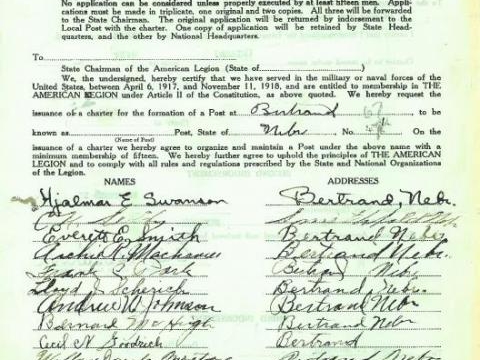 No application can be considered unless properly executed by at least fifteen men. Appli-
cations must be made in triplicate, one original and two copies. All three will be forwarded
to the State Chairman. The original application will be returned by indorsement to the
Local Post with the charter. One copy of application will be retained by State Head-
quarters, and the other by National Headquarters.
To
State Chairman of the American Legion (State of )
We, the undersigned, hereby certify that we have served in the military or naval forces of the
United States, between April 6, 1917, and November 11, 1918, and are entitled to membership in THE
AMERICAN LEGION under Article II of the Constitution, as above quoted. We hereby request the
issuance of a charter for the formation of a Post at Bertrand
known as Post, State of Nebr. No. On the
(Name of Post)
issuance of a charter we hereby agree to organize and maintain a Post under the above name with a
minimum membership of fifteen. We hereby further agree to uphold the principles of THE AMERICAN
LEGION and to comply with all rules and regulations prescribed by the State and National Organizations
of the Legion.
NAMES ADDRESSES
Hjalmar E Swanson Bertrand, Nebr.
Everett E. Smith Bertrand Nebr
Bertrand Nebr.
Frank Bertrand Nebr
Lloyd Bertrand, Nebr
Andrew W. Johnson Bertrand Nebr
Bernard McHigh Bertrand Nebr
Cecil N. Goodrich Bertrand